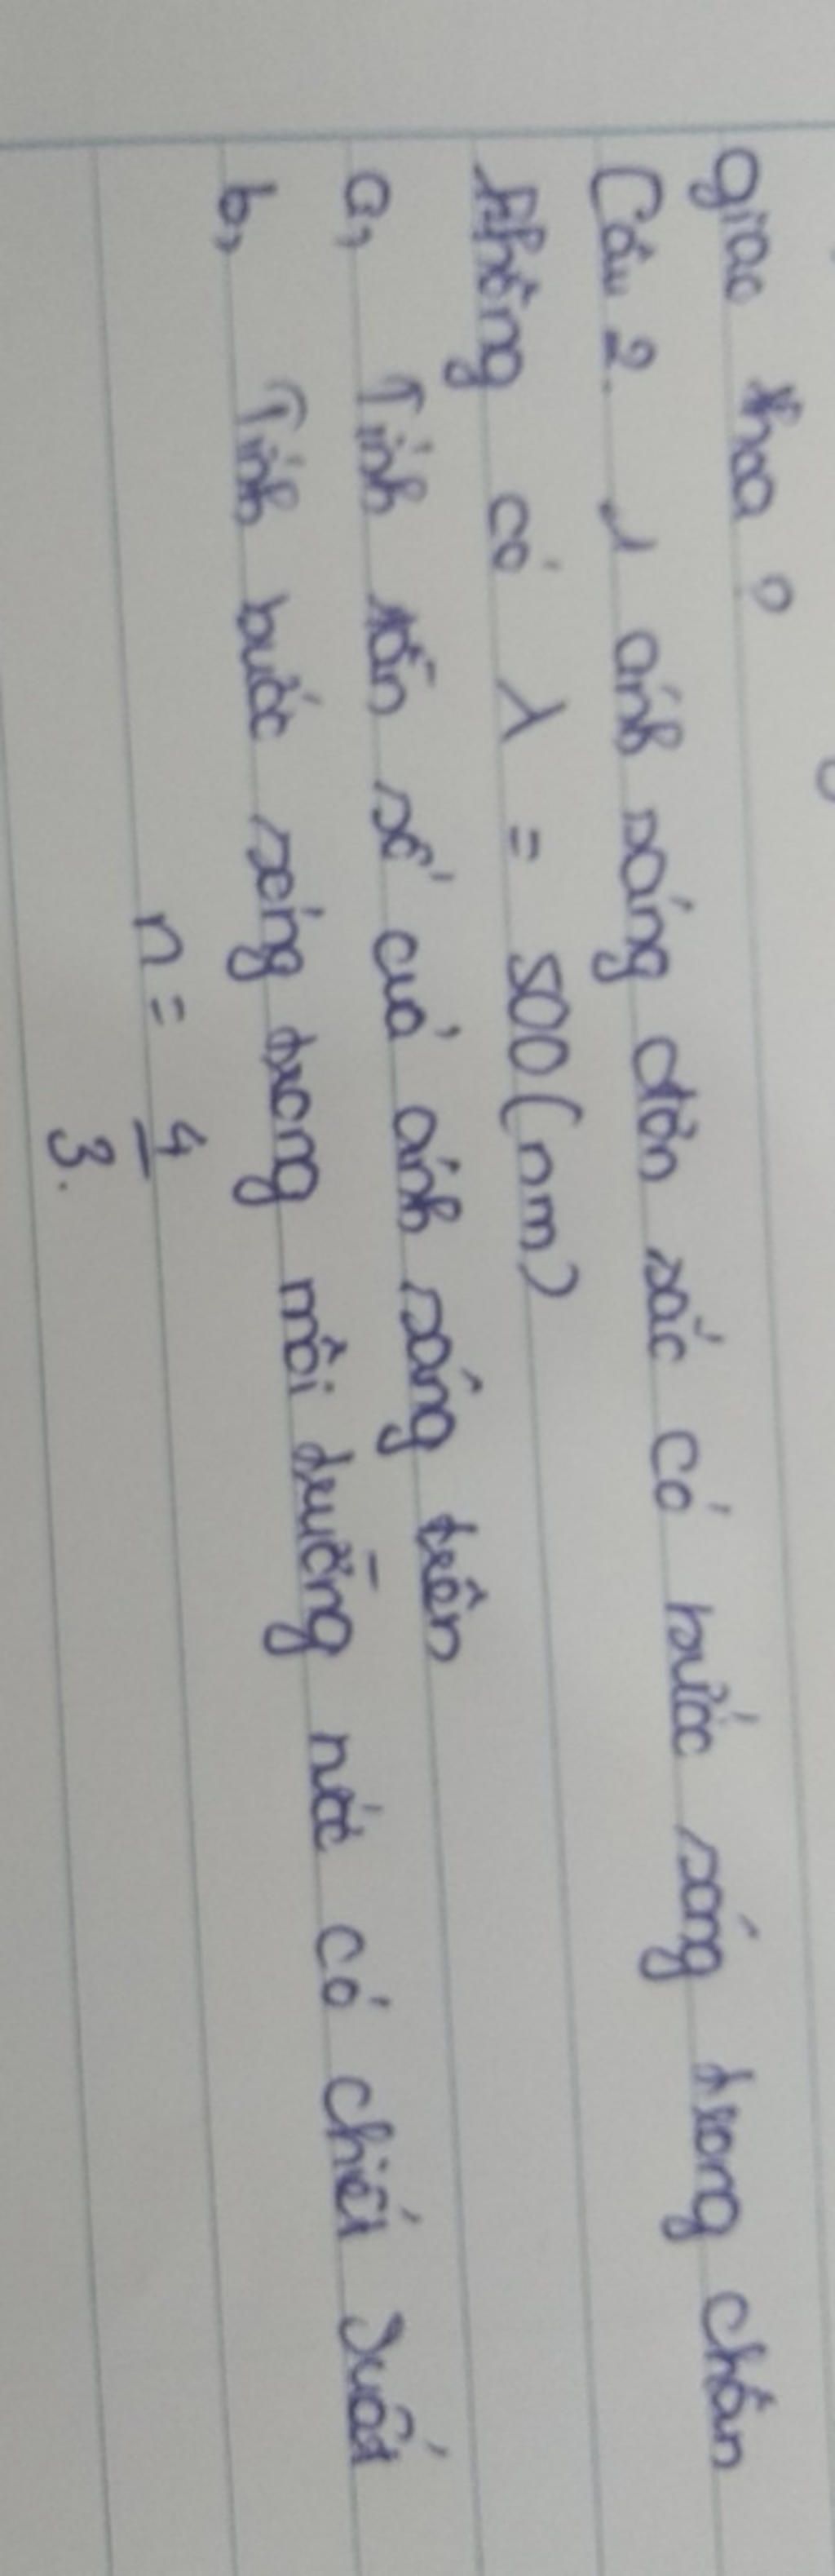 giao thoa ?
Câu 2. 1 ánh sáng đơn sắc có bước sóng trong chân
không có λ = 500 (nm)
a, Tính tần số của ánh sáng trên
b, Tính bước sóng trong môi trường nước có chiết suất
n = 4/3.